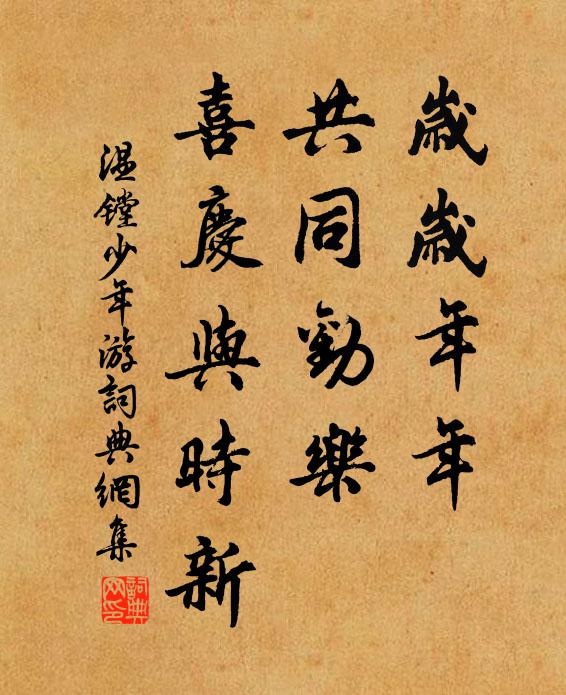 歲歲年年
共同勸樂
喜慶與時新
温鏜少年游詞典網集
詞典网印